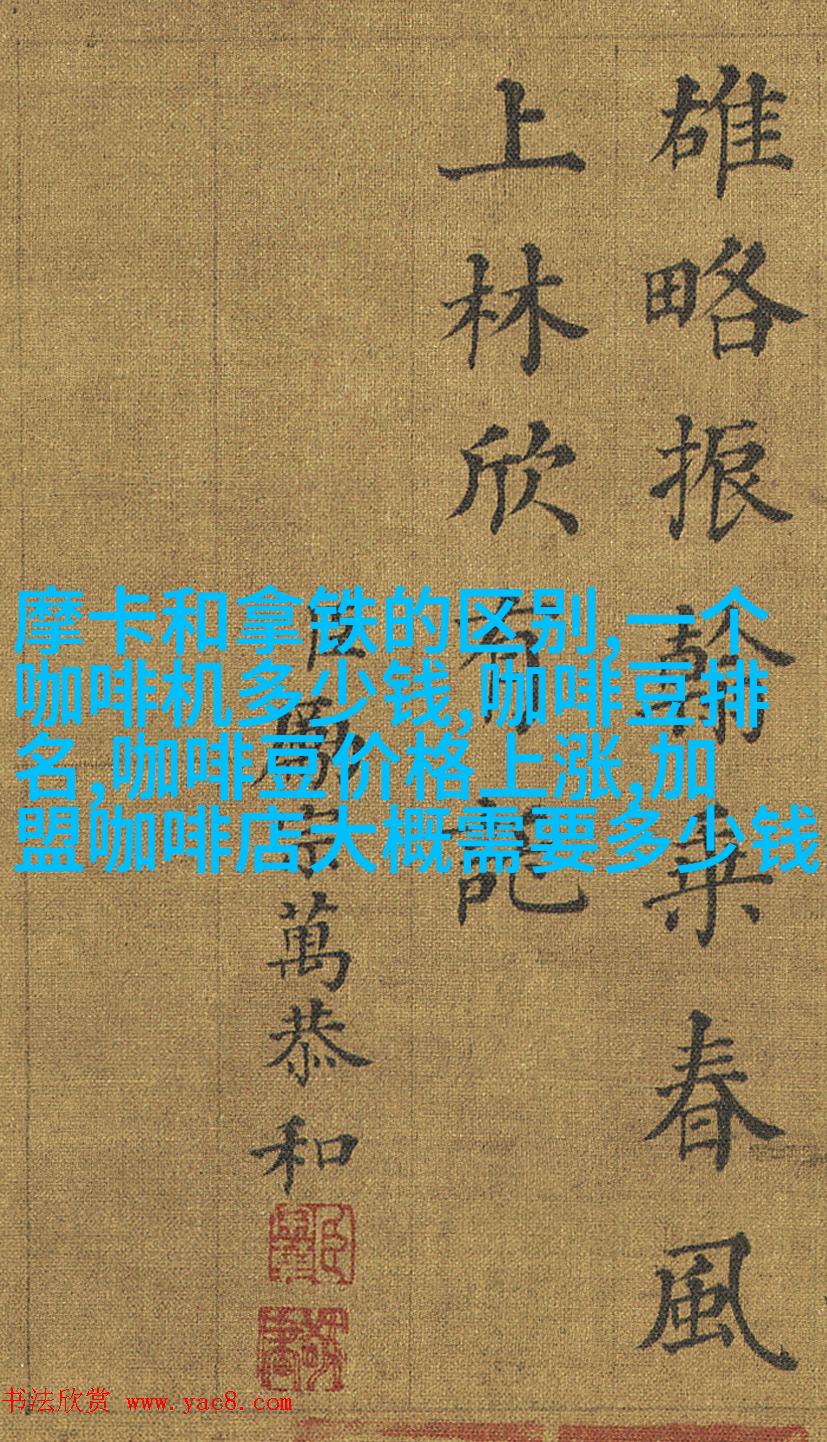 雄略振乗春風
上林欣有
臣宗萬恭和
摩卡和拿铁的区别,一个
咖啡机多少钱,咖啡豆排
名,咖啡豆价格上涨,加
盟咖啡店大概需要多少钱
书法欣赏 www.yac8.com